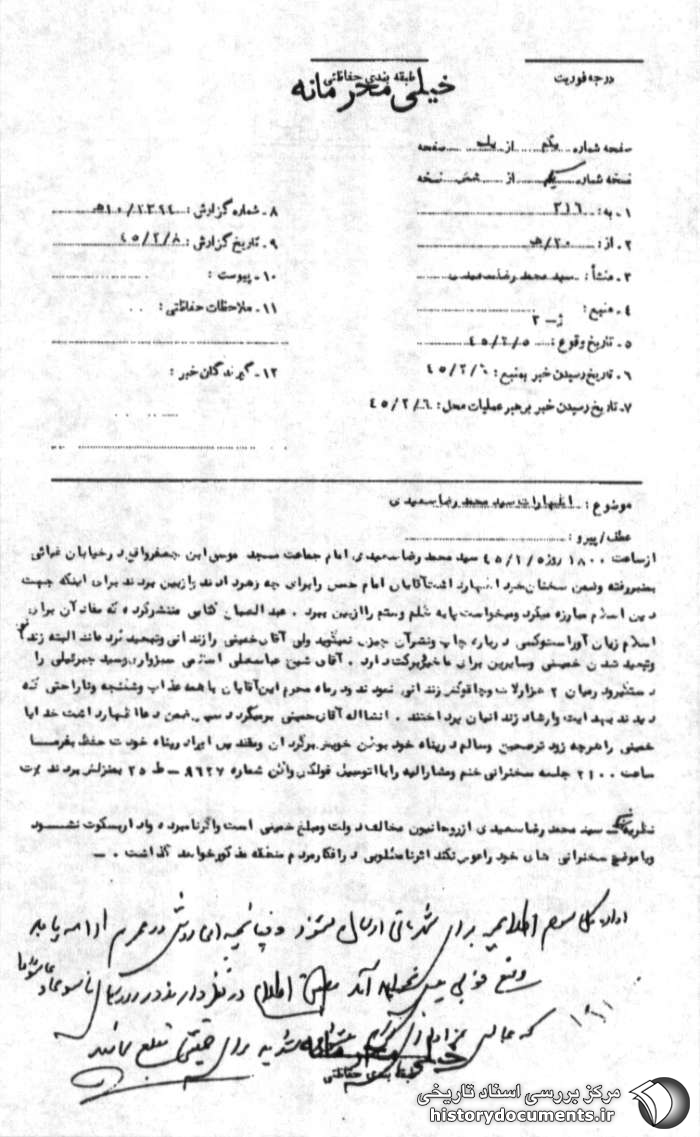 درجه فوریت
طبقه بندی حفاظتی
خیلی محرمانه
صفحه شماره یکم از یک صفحه
نسخه شماره یکم از شش نسخه
۱ـ به: ۳۱۶
۲ـ از: ۲۰/ﻫ
۳ـ منشأ: سید محمد رضا سعیدی
۴ـ منبع:
۵ـ تاریخ وقوع: ۴۵/۲/۵
۶ـ تاریخ رسیدن خبر بمنبع: ۴۵/۲/۶
۷ـ تاریخ رسیدن خبر برهبر عملیات محل: ۴۵/۲/۶
۸ـ شماره گزارش:
۹ـ تاریخ گزارش: ۴۵/۲/۸
۱۰ـ پیوست:
۱۱ـ ملاحظات حفاظتی:
۱۲ـ گیرندگان خبر:
موضوع: اظهارات سید محمد رضا سعیدی
عطف/پیرو:
از ساعت ۱۸۰۰ روز سید محمد رضا سعیدی امام جماعت مسجد موسی ابن جعفر واقع در خیابان غیاثی
بمنبر رفته و ضمن سخنان خود اظهار داشت آقایان امام حسن را برای چه زهر دادند و از بین بردند برای اینکه جهت
دین اسلام مبارزه میکرد و میخواست پایه ظلم و ستم را از بین ببرد . کتابی منتشر کرده که مفاد آن برای
اسلام زیان آور است و کسی درباره چاپ و نشر آن چیزی نمیگوید ولی آقای خمینی را زندانی و تبعید کرده‌اند البته
و تبعید شدن خمینی و سایرین برای ما خیر و برکت دارد . آقای شیخ عباسعلی اسلامی سبزواری و سید جبرئیلی را
دستگیر و در میان ۲ هزار لات و چاقوکش زندانی نمودند و در ماه محرم این آقایان با همه عذاب و شکنجه و ناراحتی که
دیدند بهدایت و ارشاد زندانیان پرداختند . انشااله آقای خمینی برمیگردد سپس ضمن دعا اظهار داشت خدایا
خمینی را هر چه زودتر صحیح و سالم در پناه خود بوطن خویش برگردان و در پناه خودت حفظ بفرما
ساعت ۲۱۰۰ جلسه سخنرانی ختم و مشارالیه را با اتومبیل فولکس واگن شماره ۹۶۲۷ ـ ط ۲۵ بمنزلش بردند
نظریه ـ سید محمد رضا سعیدی از روحانیون مخالف دولت و مبلغ خمینی است و اگر نامبرده وادار بسکوت نشود
و یا موضوع سخنرانی های خود را عوض نکند اثر نامطلوبی در افکار مردم منطقه مذکور خواهد گذاشت . ـ
اداره کل سوم اطلاعیه برای شهربانی ارسال میشود و چنانچه این روش در محرم ادامه یابد
وضع خوبی پیش نخواهد آمد
خیلی محرمانه
طبقه بندی حفاظتی
مرکز بررسی اسناد تاریخی
historydocuments.ir